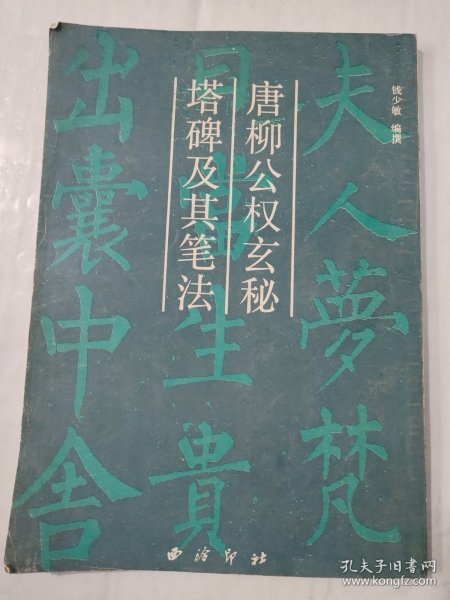 钱少敏 编撰
唐柳公权玄秘
塔碑及其笔法
夫人夢梵
日當生貴
出囊中舍
西泠印社
孔夫子旧书网
www.kongfz.com